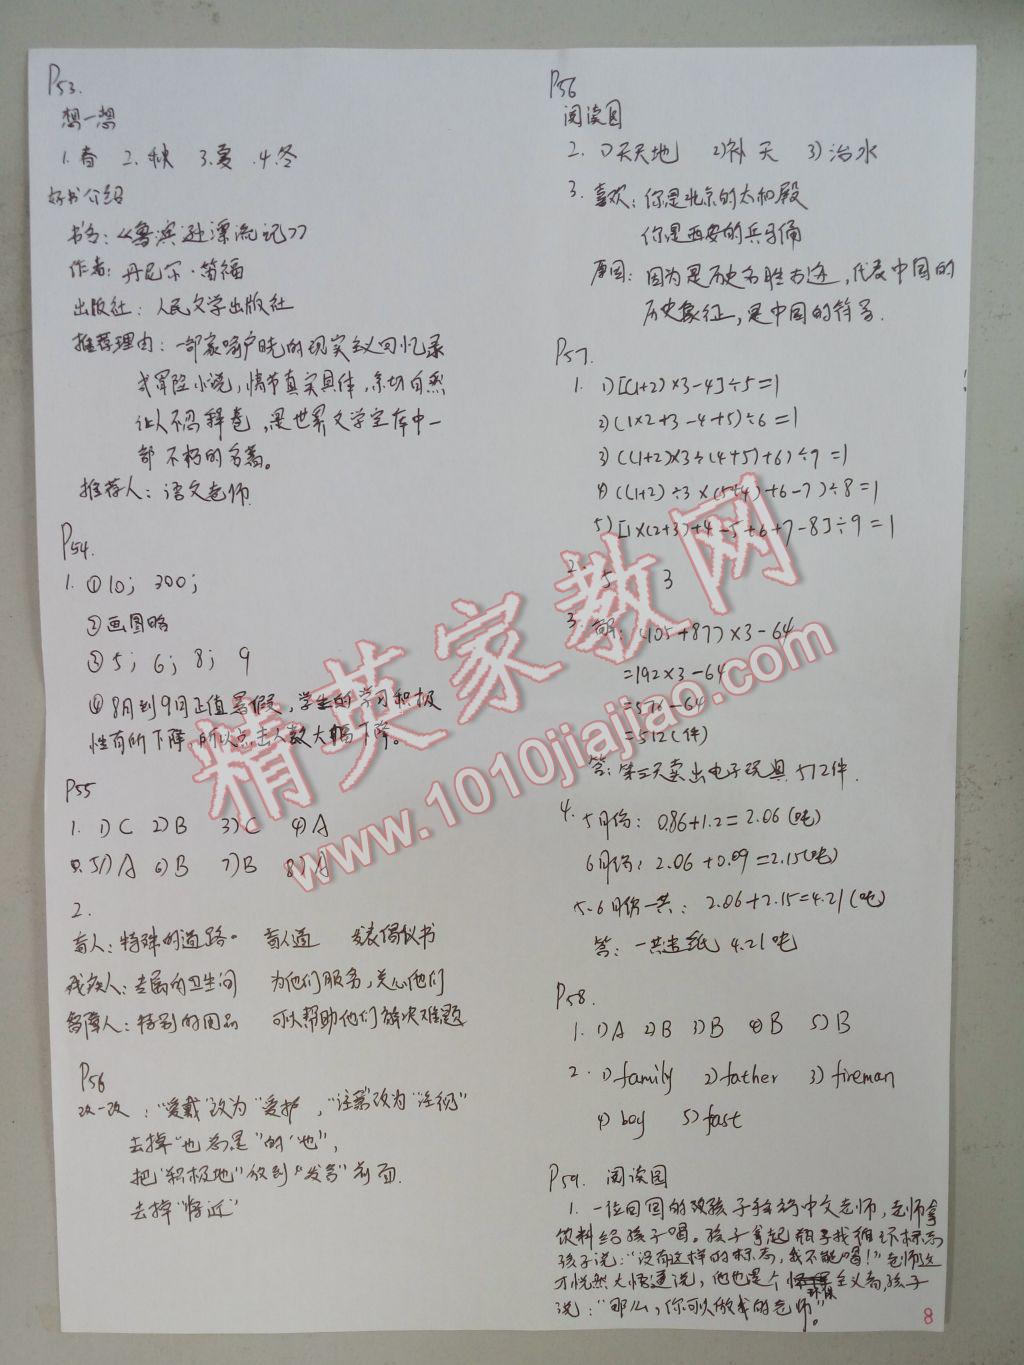 P53.
想一想
1.春 2.秋 3.夏 4.冬
好书介绍
书名:《鲁滨逊漂流记》
作者:丹尼尔·笛福
出版社:人民文学出版社
推荐理由:一部家喻户晓的现实主义回忆录
式冒险小说,情节真实具体,亲切自然
让人不忍释卷,是世界文学宝库中一
部不朽的名著。
推荐人:语文老师
P54.
1. ①10; 300;
②画图略
③5; 6; 8; 9
④8月到9月正值暑假,学生的学习积极
性有所下降,所以点击人数大幅下降。
P55
1. 1)C 2)B 3)C 4)A
5)A 6)B 7)B 8)A
2.
盲人:特殊的道路. 盲人道 发表倡议书
残疾人:专属的卫生间 为他们服务,关心他们
智障人:特别的用品 可以帮助他们解决难题
P56
改一改:"爱戴"改为"爱护","注"改为"注"
去掉"也总是"的"也",
把"积极地"放到"发言"前面.
去掉"将近"
P56
阅读园
2. 1)天地 2)补天 3)治水
3. 喜欢:你是北京的太和殿
你是西安的兵马俑
原因:因为是历史名胜古迹,代表中国的
历史象征,是中国的符号.
P57.
1. 1)[(1+2)×3-4]÷5=1
2)(1×2+3-4+5)÷6=1
3)((1+2)×3÷(4+5)+6)÷7=1
4)((1+2)÷3×(5+4)+6-7)÷8=1
5)[1×(2+3)+4-5+6+7-8]÷9=1
2. 5 3
3. 解:(105+87)×3-64
=192×3-64
=576-64
=512(件)
答:第三天卖出电子玩具512件.
4. 5月份:0.86+1.2=2.06(吨)
6月份:2.06+0.09=2.15(吨)
5.6月份一共:2.06+2.15=4.21(吨)
答:一共造纸4.21吨
P58.
1. 1)A 2)B 3)B 4)B 5)B
2. 1)family 2)father 3)fireman
4)boy 5)fast
P59. 阅读园
1. 一位回国的孩子中文老师,老师拿
饮料给孩子喝。孩子拿起瓶子找循环标志
孩子说:"没有这样的标志,我不能喝!"老师这
才恍然大悟道说,他也是个环保主义者,孩子
说:"那么,你可以做我的老师"。
8
精英家教网
www.1010jiajiao.com